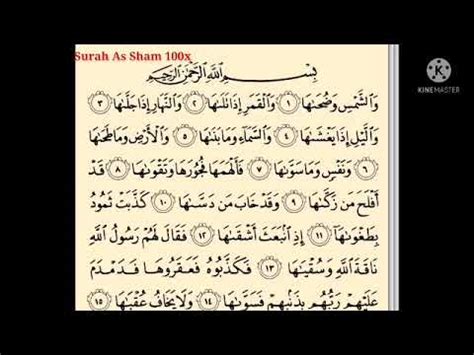 Surah As Sham 100x
بِسْمِ اللَّهِ الرَّحْمَٰنِ الرَّحِيمِ
KINEMASTER
وَالشَّمْسِ وَضُحَىٰهَا ١ وَالْقَمَرِ إِذَا تَلَىٰهَا ٢ وَالنَّهَارِ إِذَا جَلَّىٰهَا ٣
وَالَّيْلِ إِذَا يَغْشَىٰهَا ٤ وَالسَّمَآءِ وَمَا بَنَىٰهَا ٥ وَالْأَرْضِ وَمَا طَحَىٰهَا
٦ وَنَفْسٍ وَمَا سَوَّىٰهَا ٧ فَأَلْهَمَهَا فُجُورَهَا وَتَقْوَىٰهَا ٨ قَدْ
أَفْلَحَ مَن زَكَّىٰهَا ٩ وَقَدْ خَابَ مَن دَسَّىٰهَا ١٠ كَذَّبَتْ ثَمُودُ
بِطَغْوَىٰهَآ ١١ إِذِ انۢبَعَثَ أَشْقَىٰهَا ١٢ فَقَالَ لَهُمْ رَسُولُ اللَّهِ
نَاقَةَ اللَّهِ وَسُقْيَٰهَا ١٣ فَكَذَّبُوهُ فَعَقَرُوهَا فَدَمْدَمَ
عَلَيْهِمْ رَبُّهُم بِذَنۢبِهِمْ فَسَوَّىٰهَا ١٤ وَلَا يَخَافُ عُقْبَٰهَا ١٥